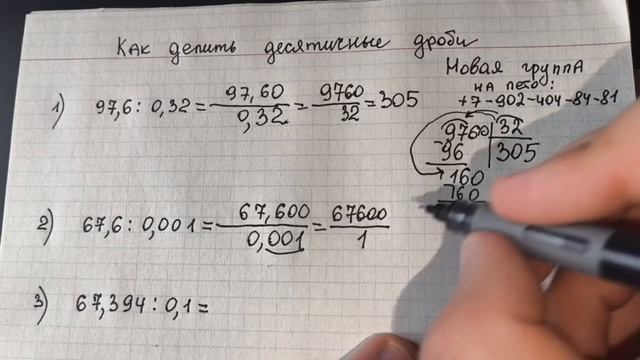 Как делить десятичные дроби
Новая группа
на лето:
+7-902-404-84-81
1) 97,6 : 0,32 = 97,60/0,32 = 9760/32 = 305
9760 | 32
96 | 305
160
160
2) 67,6 : 0,001 = 67,600/0,001 = 67600/1
3) 67,394 : 0,1 =